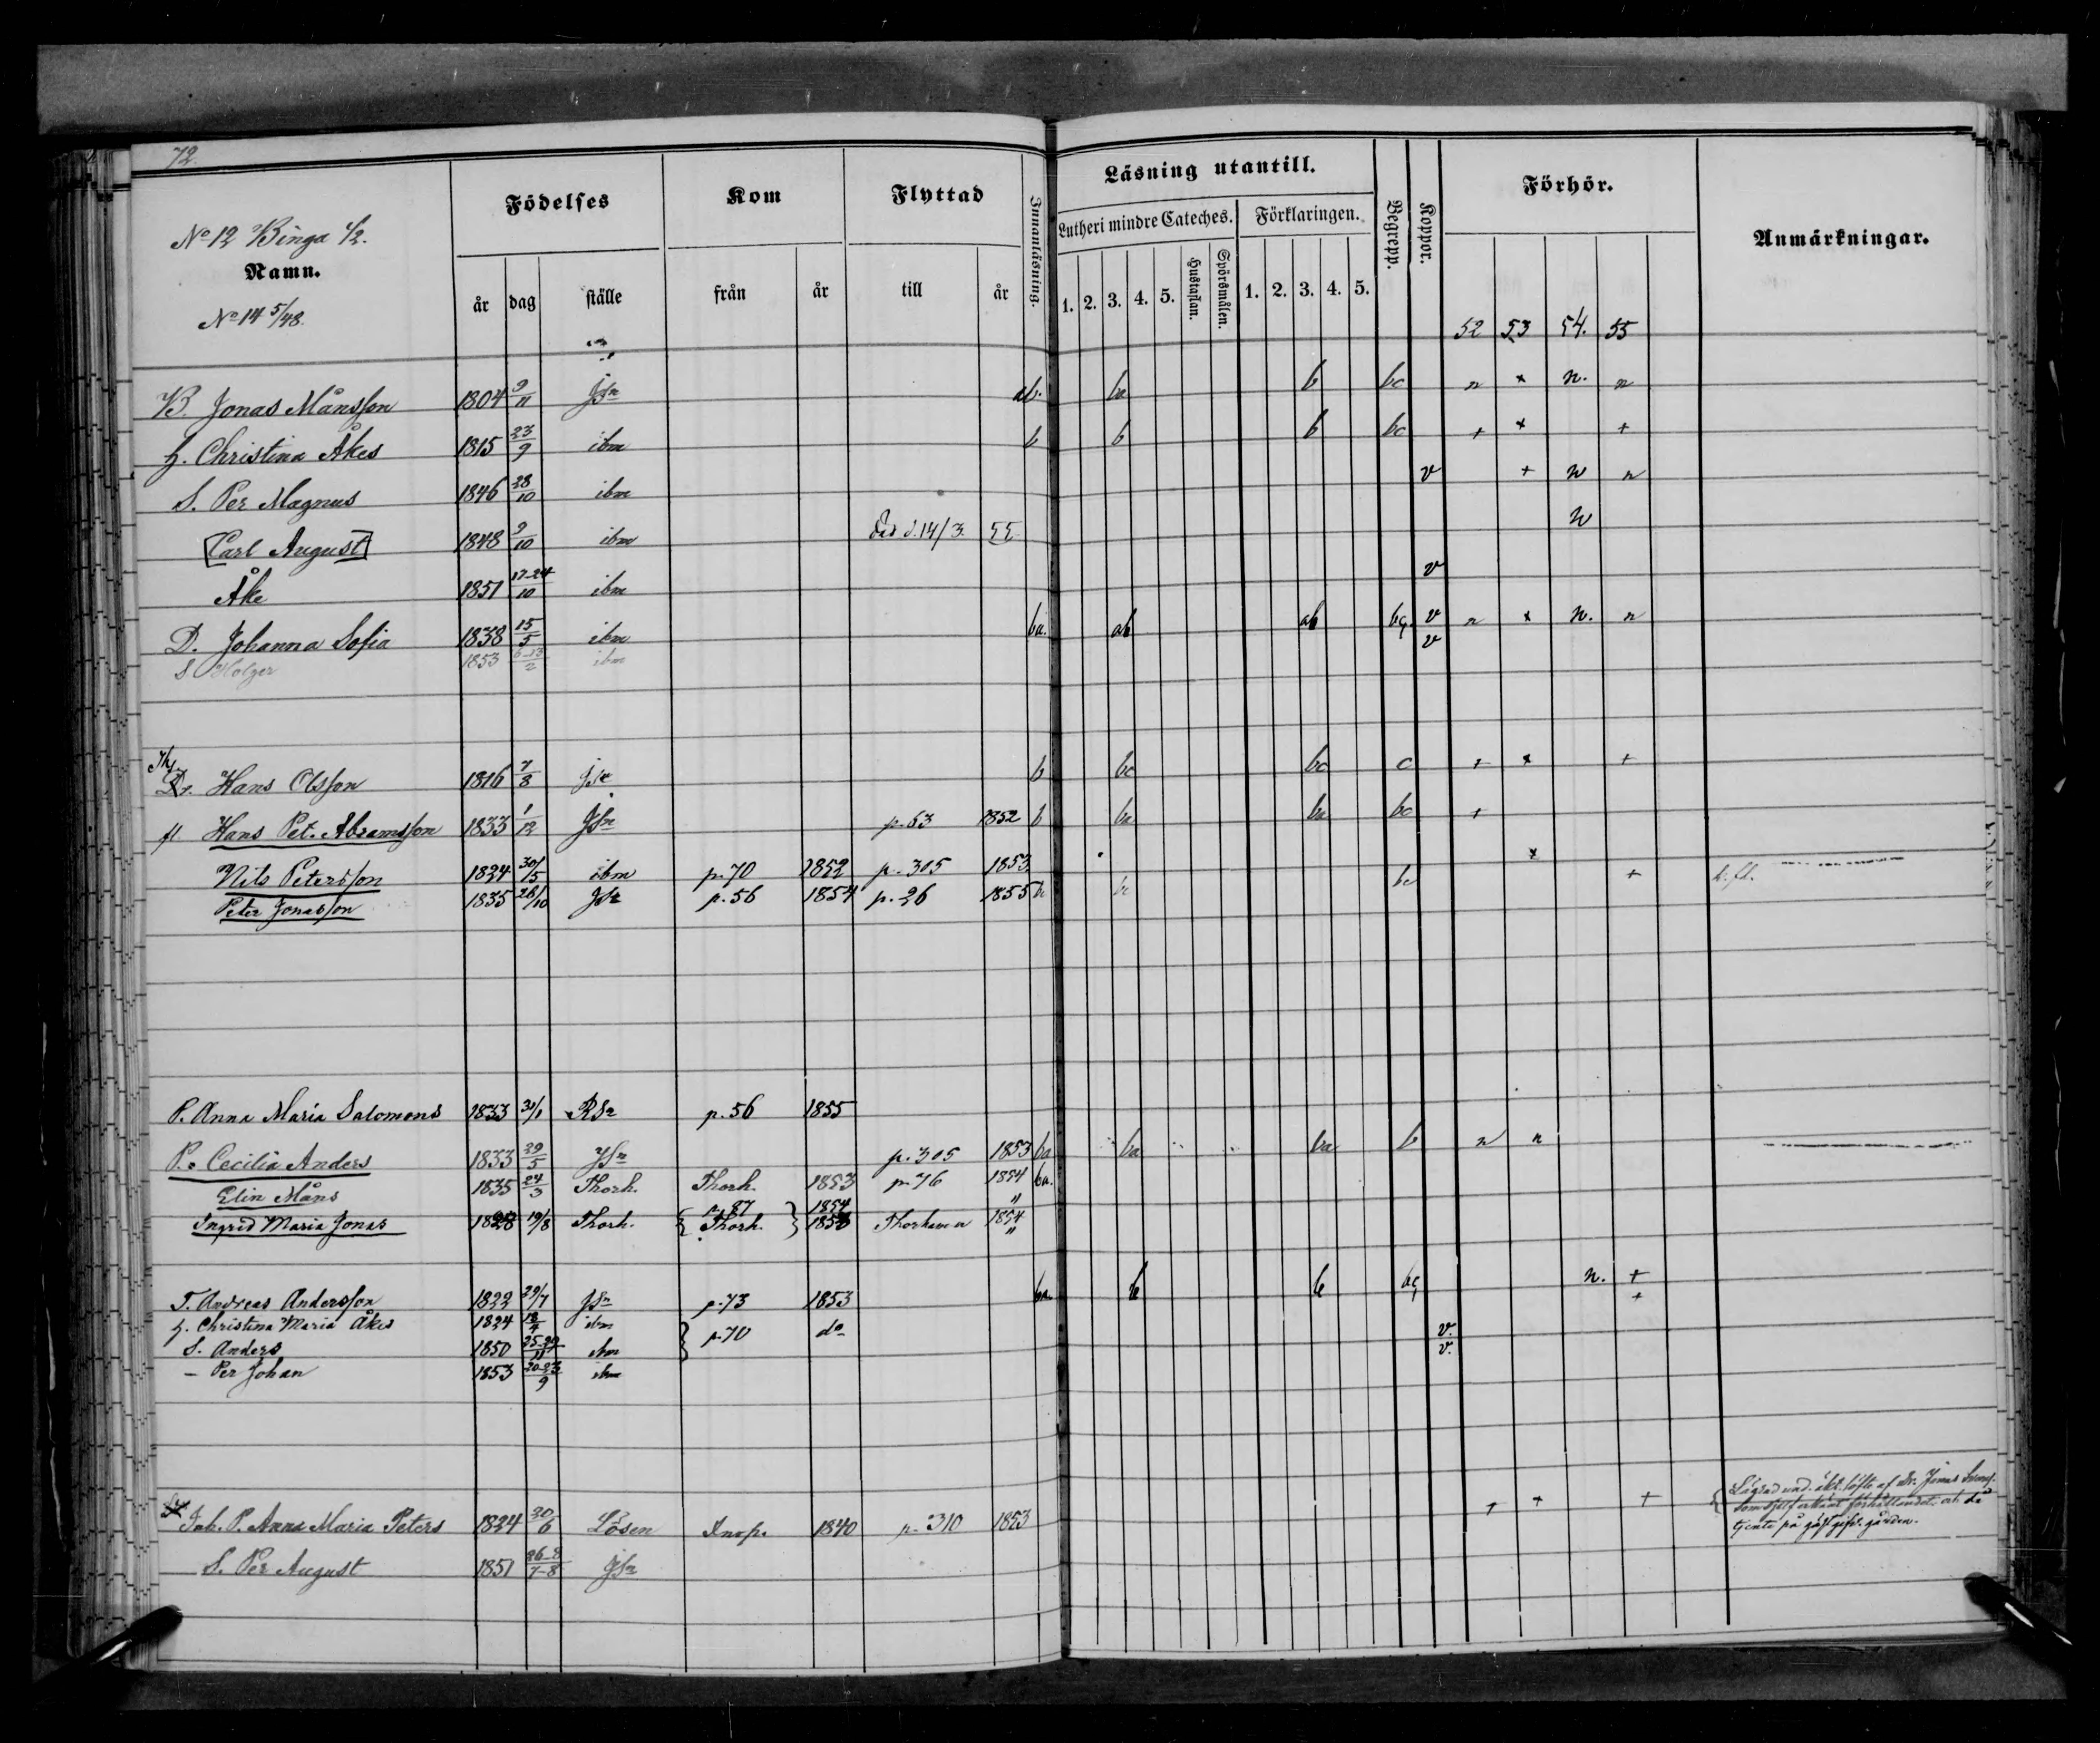 72.
Födelses Kom Flyttad Innanläsning. Läsning utantill. Begrepp. Koppor. Förhör. Anmärkningar.
No 12 Binga 1/2.
Lutheri mindre Cateches. Förklaringen.
Namn.
år dag ställe från år till år 1. 2. 3. 4. 5. Hustaflan. Spörsmålen. 1. 2. 3. 4. 5.
No 14 5/48.
52 53 54. 55
B. Jonas Månsson 1804 9/11 Jsn ab. ba b bc n x n. n
h. Christina Åkes 1815 23/9 ibm b b b bc + x +
S. Per Magnus 1846 28/10 ibm v + n n
Carl August 1848 9/10 ibm död d. 14/3. 55 n
Åke 1851 17-24/10 ibm v
D. Johanna Sofia 1838 15/5 ibm ba. ab ab bc v n x n. n
S. Holger 1853 6-13/2 ibm v
Dr. Hans Olsson 1816 7/8 b bc bc c + x +
fl Hans Pet. Abramsson 1833 1/12 Jsn p. 53 1852 b ba ba bc +
Nils Petersson 1824 30/5 ibm p. 70 1852 p. 305 1853 x
Peter Jonasson 1835 28/10 Jsn p. 56 1854 p. 26 1855 b bc bc +
P. Anna Maria Salomons 1833 30/1 RSn p. 56 1855
P. Cecilia Anders 1833 29/5 Jsn p. 305 1853 ba ba ba b n n
Elin Måns 1835 24/3 Thorh. Thorh. 1853 p. 76 1854 ba.
p. 87 1854 "
Ingrid Maria Jonas 1828 19/8 Thorh. { Thorh. } 1853 Thorhamn 1854 "
T. Andreas Andersson 1822 29/7 Jsn p. 73 1853 ba. b b bc n. +
h. Christina Maria Åkes 1824 18/4 ibm } p. 70 do +
S. Anders 1850 25-29/11 ibm v.
– Per Johan 1853 20-23/9 ibm v.
Inh. P. Anna Maria Peters 1824 30/6 Lösen 1840 p. 310 1853 + + + Lägrad und. äkt. löfte af Dr. Jonas
som sjelf erkänt förhållandet och då
tjente på gästgifv. gården.
S. Per August 1851 26-8/7-8 Jsn